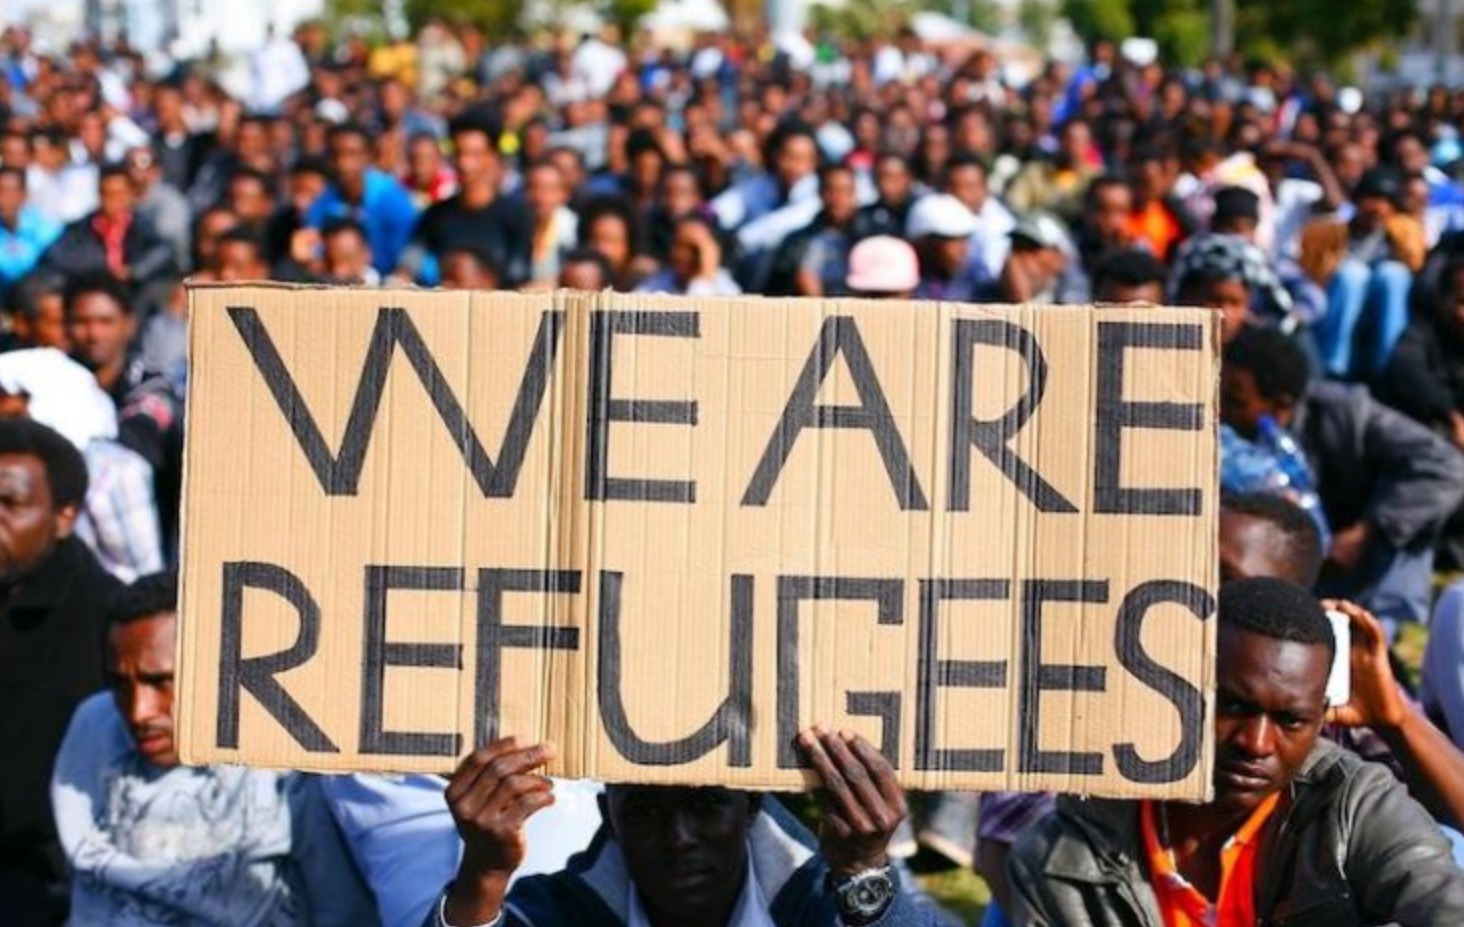 WE ARE
REFUGEES